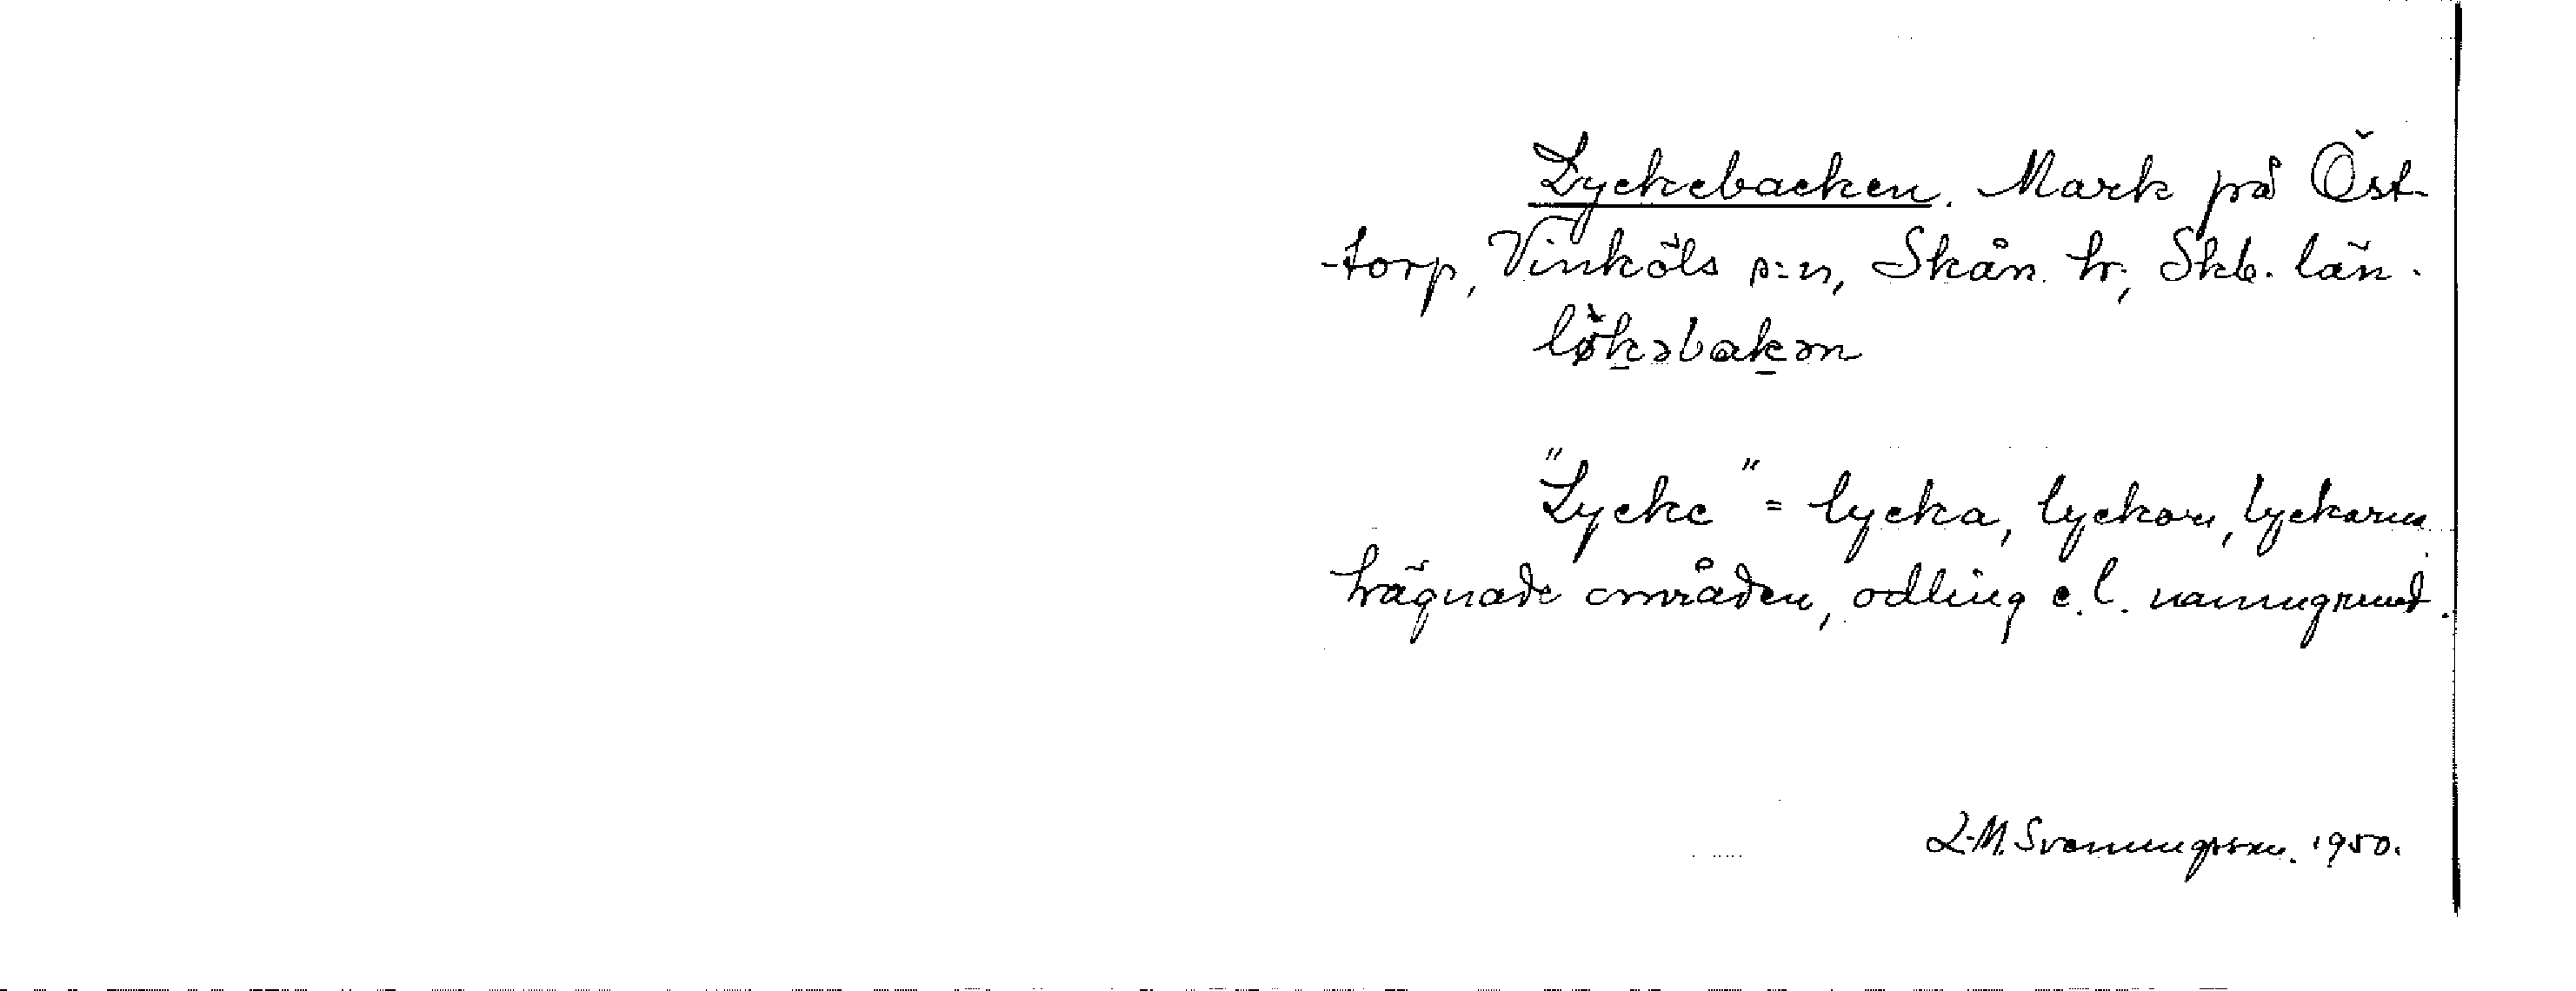 Lyckebacken. Mark på Öst-
-torp, Vinköls s:n, Skån. hr, Skb. län.
lø̀kəbakən
"Lycke" = lycka, lyckor,
hägnade områden, odling e.l. namngrund.
L-M. Svenungsson. 1950.